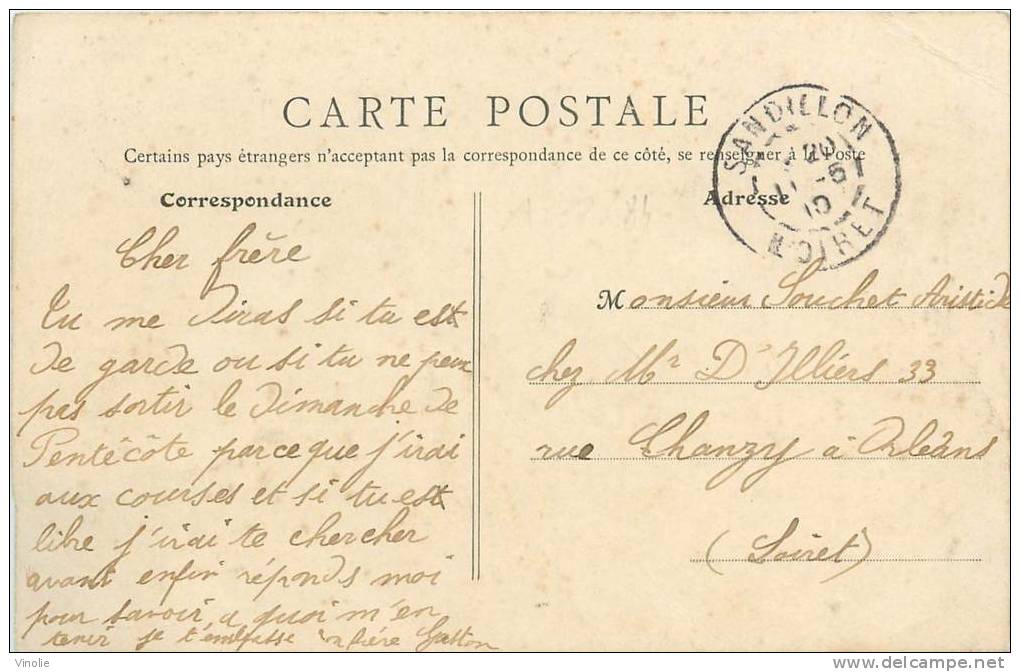 CARTE POSTALE
Certains pays étrangers n'acceptant pas la correspondance de ce côté, se renseigner à la Poste
Correspondance
Cher frère
Tu me diras si tu est
de garde ou si tu ne peux
pas sortir le dimanche de
Pentêcôte parce que j'irai
aux courses et si tu est
libre j'irai te chercher
avant enfin réponds moi
pour savoir a quoi m'en
tenir je t'embrasse frère Gaston
SANDILLON
LOIRET
Adresse
Monsieur Souchet Aristide
chez Mr D'Illiers 33
rue Chanzy à Orléans
(Loiret)
Vinolie
http://www.delcampe.net